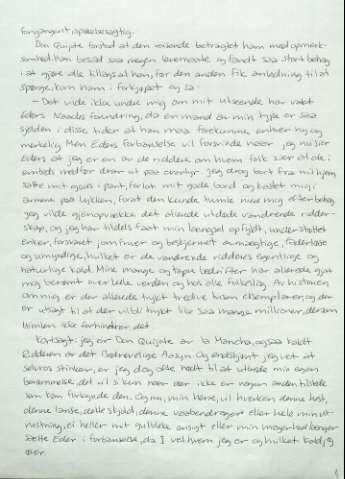 forgjengent, spøkelsesagtig.
Don Quijote forstod at den reisende betragtet ham med opmerk-
somhed. Han besad saa megen levemaate og fandt saa stort behag
i at gjøre alle tillags at han, før den anden fik anledning til at
spørge, kom ham i forkjøpet og sa:
– Det vilde ikke undre mig om mit utseende har vakt
Eders Naades forundring, da en mand av min type er saa
sjelden i disse tider at han maa forekomme enhver ny og
merkelig. Men Eders forbauselse vil forsvinde naar jeg nu sier
Eders at jeg er en av de riddere om hvem folk sier at de i
embeds medfør drar ut paa eventyr. Jeg drog bort fra mit hjem,
satte mit gods i pant, forlot mit gode bord og kastet mig i
armene paa lykken, forat den kunde tumle med mig efter behag.
Jeg vilde gjenopvække det allerede utdøde vandrende ridder-
skap, og jeg har tildels faat min længsel opfyldt, understøttet
enker, forsvaret jomfruer og beskjermet avmægtige, faderløse
og umyndige, hvilket er de vandrende ridderes egentlige og
naturlige kald. Mine mange og tapre bedrifter har allerede gjort
mig berømt over hele verden og hos alle folkeslag. Av historien
om mig er der allerede trykt tredive tusen eksemplarer, og der
er utsigt til at der vil bli trykt like saa mange millioner, dersom
himlen ikke forhindrer det.
Kortsagt: jeg er Don Quijote av la Mancha, ogsaa kaldt
Ridderen av det Bedrøvelige Aasyn. Og endskjønt jeg vet at
selvros stinker, er jeg dog ofte nødt til at utbrede min egen
berømmelse, det vil si kun naar der ikke er nogen anden tilstede
som kan forkynde den. Og nu, min herre, vil hverken denne hest,
denne lanse, dette skjold, denne vaabendrager eller hele min ut-
rustning, ei heller mit gulbleke ansigt eller min magerhed længer
sætte Eder i forbauselse, da I vet hvem jeg er og hvilket kald jeg
øver.